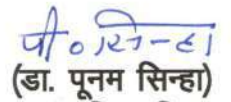 पी० सिन्हा
(डा. पूनम सिन्हा)